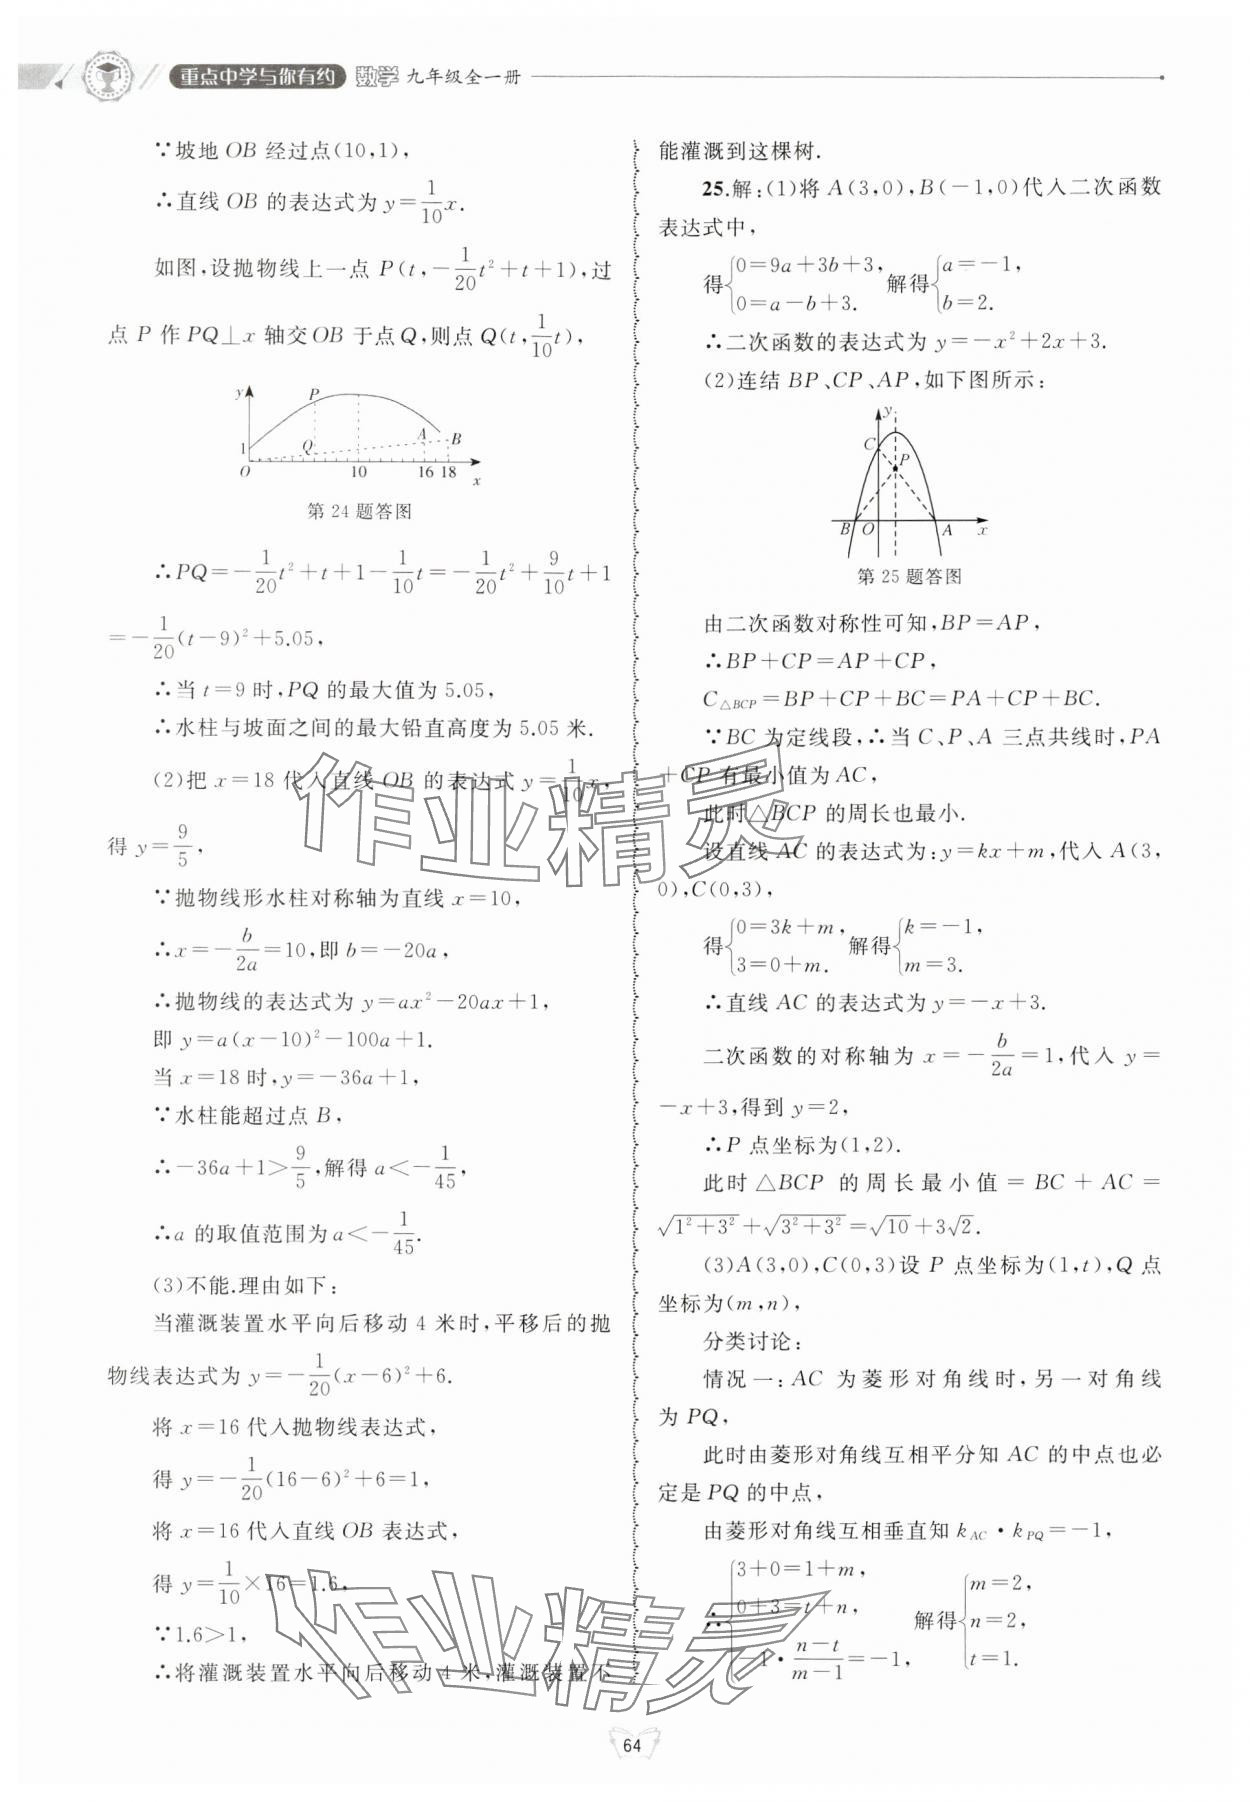 重点中学与你有约 数学 九年级全一册
∵坡地 OB 经过点(10,1),
∴直线 OB 的表达式为 y=1/10 x.
如图,设抛物线上一点 P(t,-1/20 t²+t+1),过
点 P 作 PQ⊥x 轴交 OB 于点 Q,则点 Q(t,1/10 t),
y P A B Q 1 O 10 16 18 x
第 24 题答图
∴PQ=-1/20 t²+t+1-1/10 t=-1/20 t²+9/10 t+1
=-1/20(t-9)²+5.05,
∴当 t=9 时,PQ 的最大值为 5.05,
∴水柱与坡面之间的最大铅直高度为 5.05 米.
(2)把 x=18 代入直线 OB 的表达式 y=1/10 x,
得 y=9/5,
∵抛物线形水柱对称轴为直线 x=10,
∴x=-b/2a=10,即 b=-20a,
∴抛物线的表达式为 y=ax²-20ax+1,
即 y=a(x-10)²-100a+1.
当 x=18 时,y=-36a+1,
∵水柱能超过点 B,
∴-36a+1>9/5,解得 a<-1/45,
∴a 的取值范围为 a<-1/45.
(3)不能.理由如下:
当灌溉装置水平向后移动 4 米时,平移后的抛
物线表达式为 y=-1/20(x-6)²+6.
将 x=16 代入抛物线表达式,
得 y=-1/20(16-6)²+6=1,
将 x=16 代入直线 OB 表达式,
得 y=1/10×16=1.6,
∵1.6>1,
∴将灌溉装置水平向后移动 4 米,灌溉装置不
能灌溉到这棵树.
25.解:(1)将 A(3,0),B(-1,0)代入二次函数
表达式中,
得{0=9a+3b+3, 0=a-b+3. 解得{a=-1, b=2.
∴二次函数的表达式为 y=-x²+2x+3.
(2)连结 BP、CP、AP,如下图所示:
y C P B O A x
第 25 题答图
由二次函数对称性可知,BP=AP,
∴BP+CP=AP+CP,
C△BCP=BP+CP+BC=PA+CP+BC.
∵BC 为定线段,∴当 C、P、A 三点共线时,PA
+CP 有最小值为 AC,
此时△BCP 的周长也最小.
设直线 AC 的表达式为:y=kx+m,代入 A(3,
0),C(0,3),
得{0=3k+m, 3=0+m. 解得{k=-1, m=3.
∴直线 AC 的表达式为 y=-x+3.
二次函数的对称轴为 x=-b/2a=1,代入 y=
-x+3,得到 y=2,
∴P 点坐标为(1,2).
此时△BCP 的周长最小值=BC+AC=
√(1²+3²)+√(3²+3²)=√10+3√2.
(3)A(3,0),C(0,3)设 P 点坐标为(1,t),Q 点
坐标为(m,n),
分类讨论:
情况一:AC 为菱形对角线时,另一对角线
为 PQ,
此时由菱形对角线互相平分知 AC 的中点也必
定是 PQ 的中点,
由菱形对角线互相垂直知 kAC·kPQ=-1,
∴{3+0=1+m, 0+3=t+n, -1·(n-t)/(m-1)=-1, 解得{m=2, n=2, t=1.
作业精灵
作业精灵
64